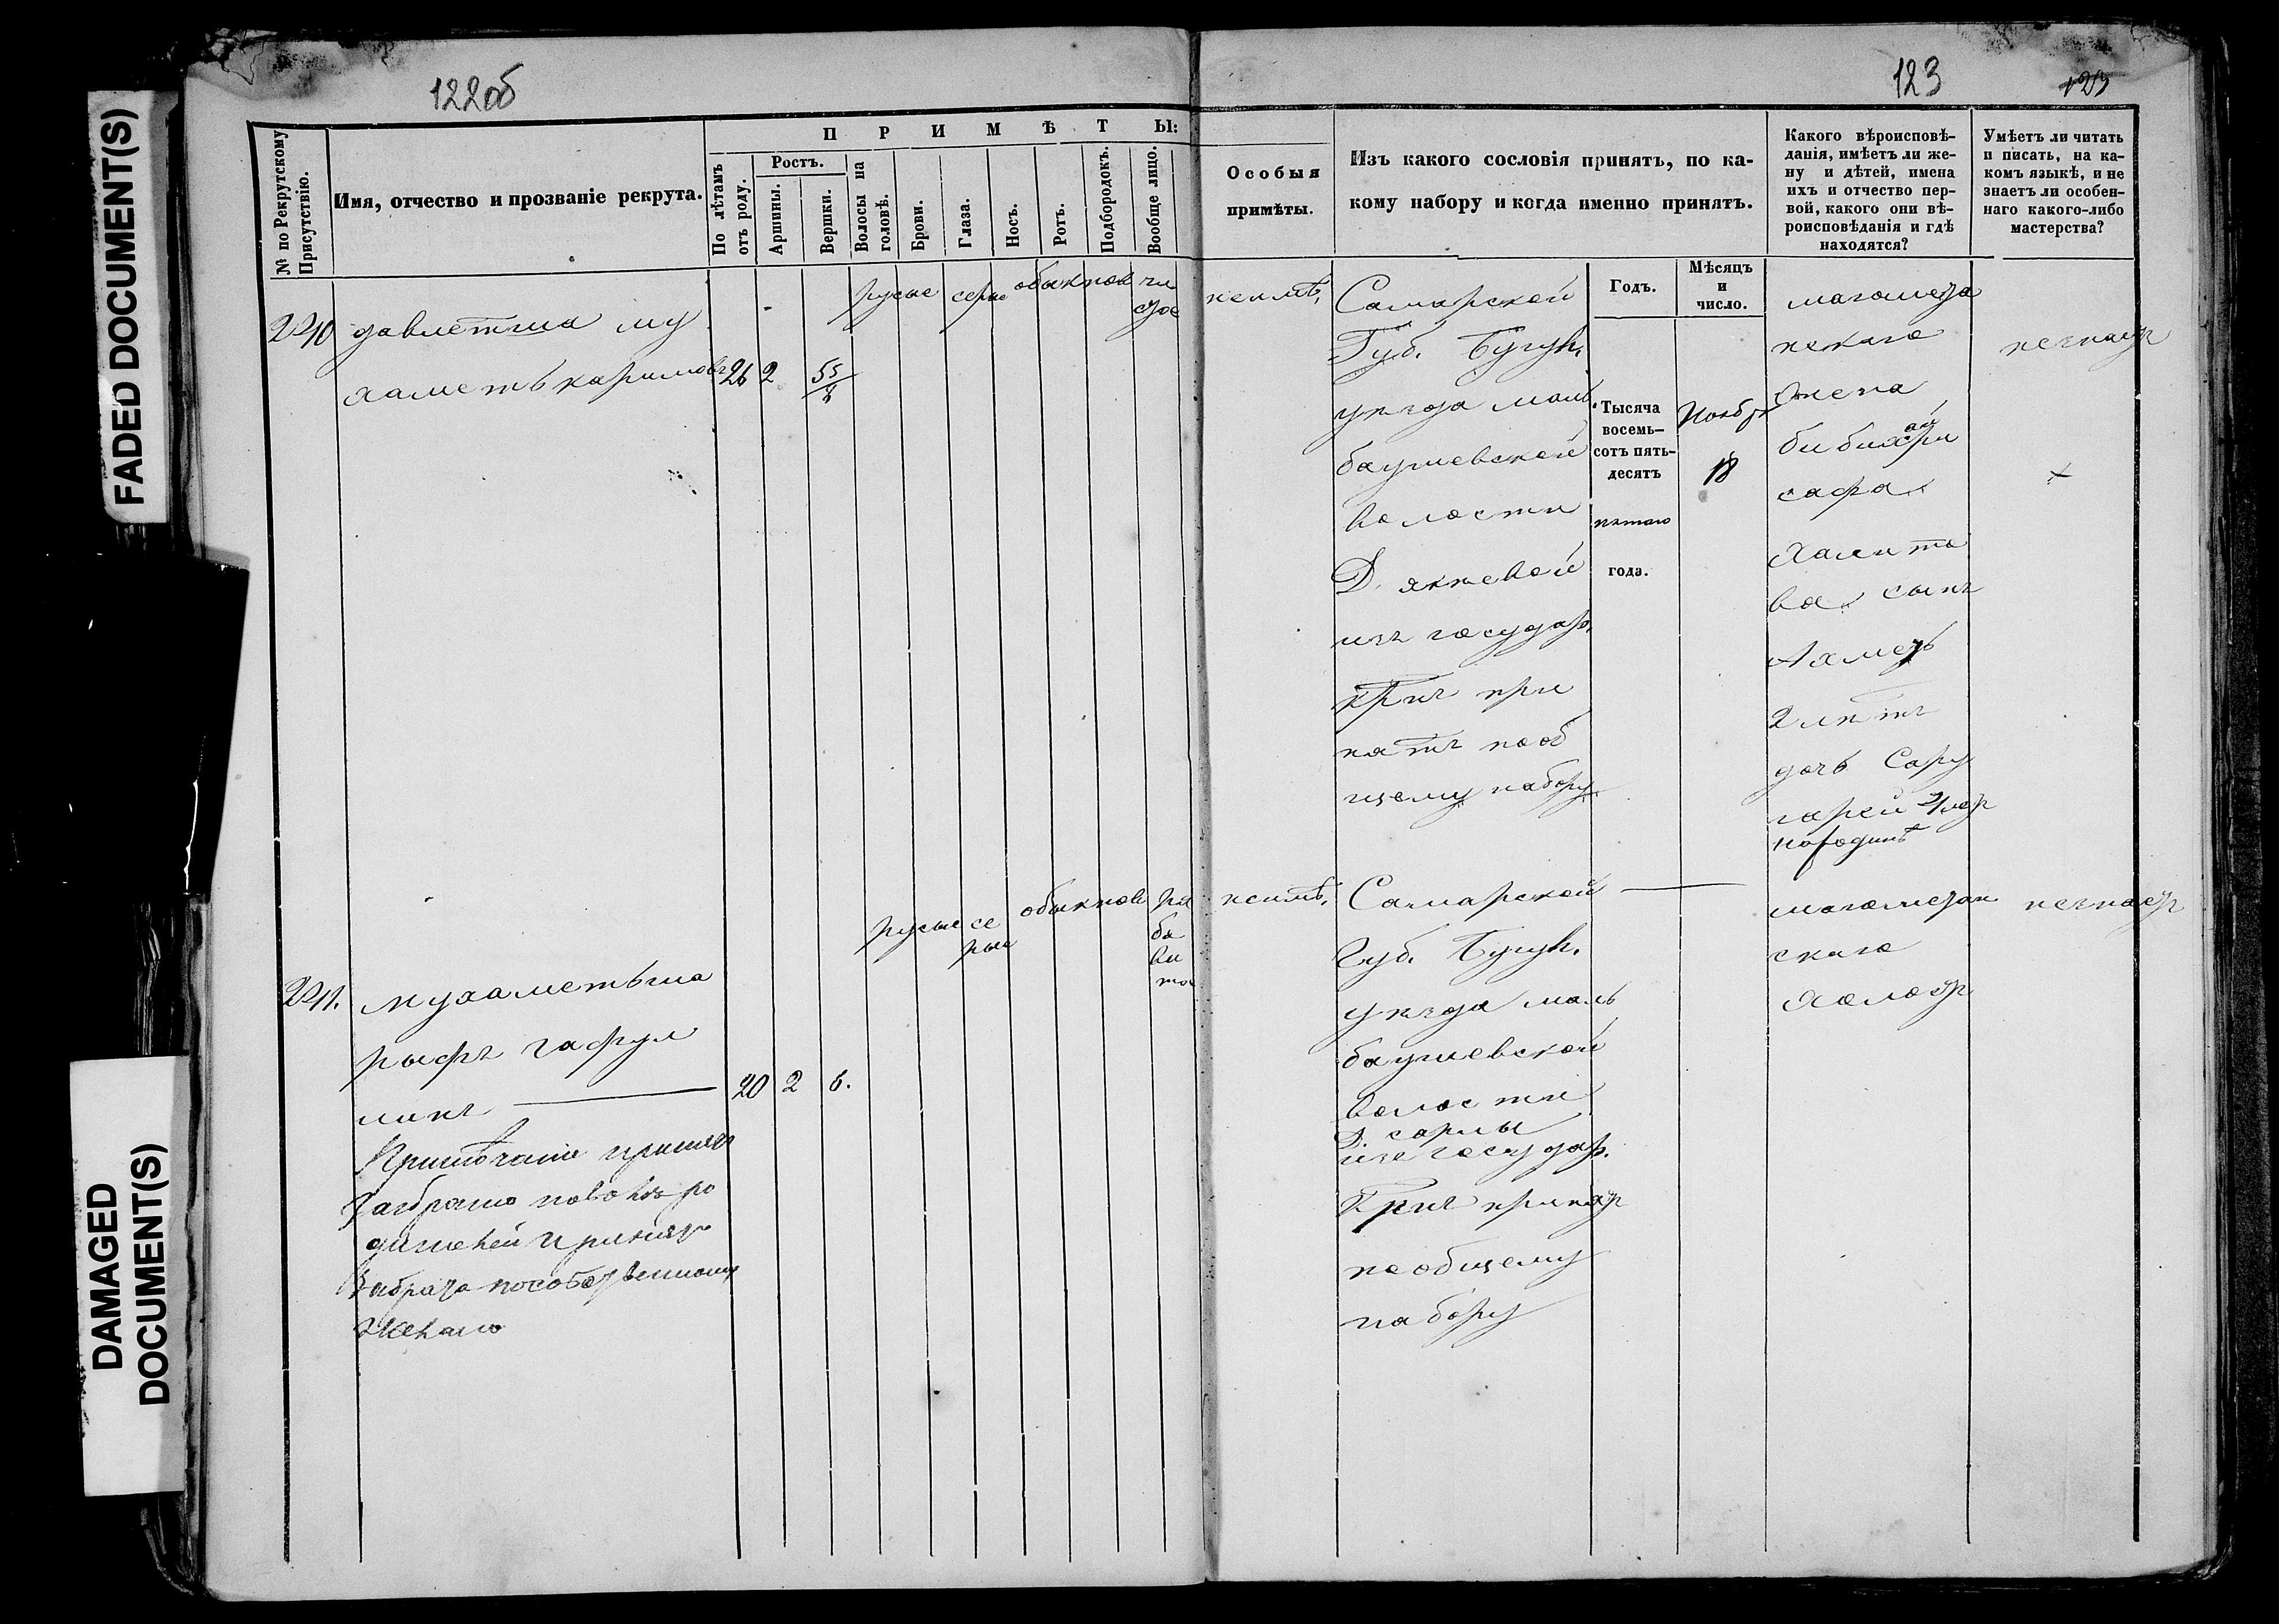 122об
123
123
FADED DOCUMENT(S)
DAMAGED
DOCUMENT(S)
№ по Рекрутскому
Присутствію.
Имя, отчество и прозваніе рекрута.
ПРИМѢТЫ:
По лѣтамъ
отъ роду.
Ростъ.
Аршины.
Вершки.
Волосы на
головѣ.
Брови.
Глаза.
Носъ.
Ротъ.
Подбородокъ.
Вообще лицо.
Особыя
примѣты.
Изъ какого сословія принятъ, по ка-
кому набору и когда именно принятъ.
Какого вѣроисповѣ-
данія, имѣетъ ли же-
ну и дѣтей, имена
ихъ и отчество пер-
вой, какого они вѣ-
роисповѣданія и гдѣ
находятся?
Умѣетъ ли читать
и писать, на ка-
комъ языкѣ, и не
знаетъ ли особен-
наго какого-либо
мастерства?
Годъ.
Мѣсяцъ
и
число.
давлетша му
хаметь каримовъ
26
2
русые
серые
обыкнов
чи
стое
неимѣ,
Самарской
Губ. Бугул.
уѣзда
баушевской
волости
Д.
изъ государ.
кр-нъ при
нятъ пооб
щему набору
Тысяча
восемь-
сотъ пять-
десятъ
пятаго
года.
Ноябр
18
магомета
нскаго
жена
сафа
Халито
ва сынъ
Ахметь
2 лѣтъ
дочь Сару
народинѣ
незнаетъ
мухаметьша
рыфъ гафул
линъ
20
2
6.
русые
се
рые
обыкнов
ря
бо
ва
тое
неимѣ,
Самарской
Губ. Бугул.
уѣзда маль
баушевской
волости
Д. сарлы
изъ государ.
Кр-нъ принятъ
пообщему
набору
магометан
скаго
Холостъ
незнаетъ